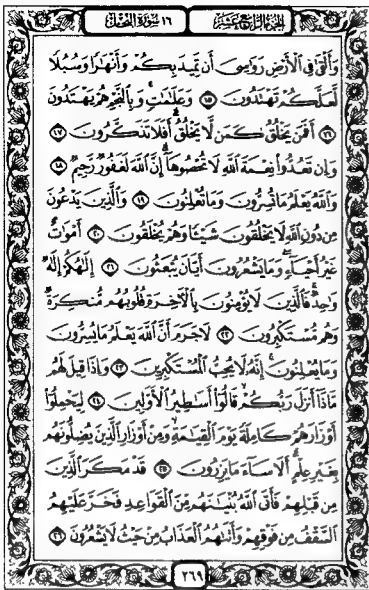 الجزء الرابع عشر ١٦ سورة النحل
وَأَلْقَىٰ فِى ٱلْأَرْضِ رَوَٰسِىَ أَن تَمِيدَ بِكُمْ وَأَنْهَٰرًا وَسُبُلًا
لَّعَلَّكُمْ تَهْتَدُونَ ﴿١٥﴾ وَعَلَٰمَٰتٍ ۚ وَبِٱلنَّجْمِ هُمْ يَهْتَدُونَ
﴿١٦﴾ أَفَمَن يَخْلُقُ كَمَن لَّا يَخْلُقُ ۗ أَفَلَا تَذَكَّرُونَ ﴿١٧﴾
وَإِن تَعُدُّوا۟ نِعْمَةَ ٱللَّهِ لَا تُحْصُوهَآ ۗ إِنَّ ٱللَّهَ لَغَفُورٌ رَّحِيمٌ ﴿١٨﴾
وَٱللَّهُ يَعْلَمُ مَا تُسِرُّونَ وَمَا تُعْلِنُونَ ﴿١٩﴾ وَٱلَّذِينَ يَدْعُونَ
مِن دُونِ ٱللَّهِ لَا يَخْلُقُونَ شَيْـًٔا وَهُمْ يُخْلَقُونَ ﴿٢٠﴾ أَمْوَٰتٌ
غَيْرُ أَحْيَآءٍ ۖ وَمَا يَشْعُرُونَ أَيَّانَ يُبْعَثُونَ ﴿٢١﴾ إِلَٰهُكُمْ إِلَٰهٌ
وَٰحِدٌ ۚ فَٱلَّذِينَ لَا يُؤْمِنُونَ بِٱلْءَاخِرَةِ قُلُوبُهُم مُّنكِرَةٌ
وَهُم مُّسْتَكْبِرُونَ ﴿٢٢﴾ لَا جَرَمَ أَنَّ ٱللَّهَ يَعْلَمُ مَا يُسِرُّونَ
وَمَا يُعْلِنُونَ ۚ إِنَّهُۥ لَا يُحِبُّ ٱلْمُسْتَكْبِرِينَ ﴿٢٣﴾ وَإِذَا قِيلَ لَهُم
مَّاذَآ أَنزَلَ رَبُّكُمْ ۙ قَالُوٓا۟ أَسَٰطِيرُ ٱلْأَوَّلِينَ ﴿٢٤﴾ لِيَحْمِلُوٓا۟
أَوْزَارَهُمْ كَامِلَةً يَوْمَ ٱلْقِيَٰمَةِ ۙ وَمِنْ أَوْزَارِ ٱلَّذِينَ يُضِلُّونَهُم
بِغَيْرِ عِلْمٍ ۗ أَلَا سَآءَ مَا يَزِرُونَ ﴿٢٥﴾ قَدْ مَكَرَ ٱلَّذِينَ
مِن قَبْلِهِمْ فَأَتَى ٱللَّهُ بُنْيَٰنَهُم مِّنَ ٱلْقَوَاعِدِ فَخَرَّ عَلَيْهِمُ
ٱلسَّقْفُ مِن فَوْقِهِمْ وَأَتَىٰهُمُ ٱلْعَذَابُ مِنْ حَيْثُ لَا يَشْعُرُونَ ﴿٢٦﴾
٢٦٩